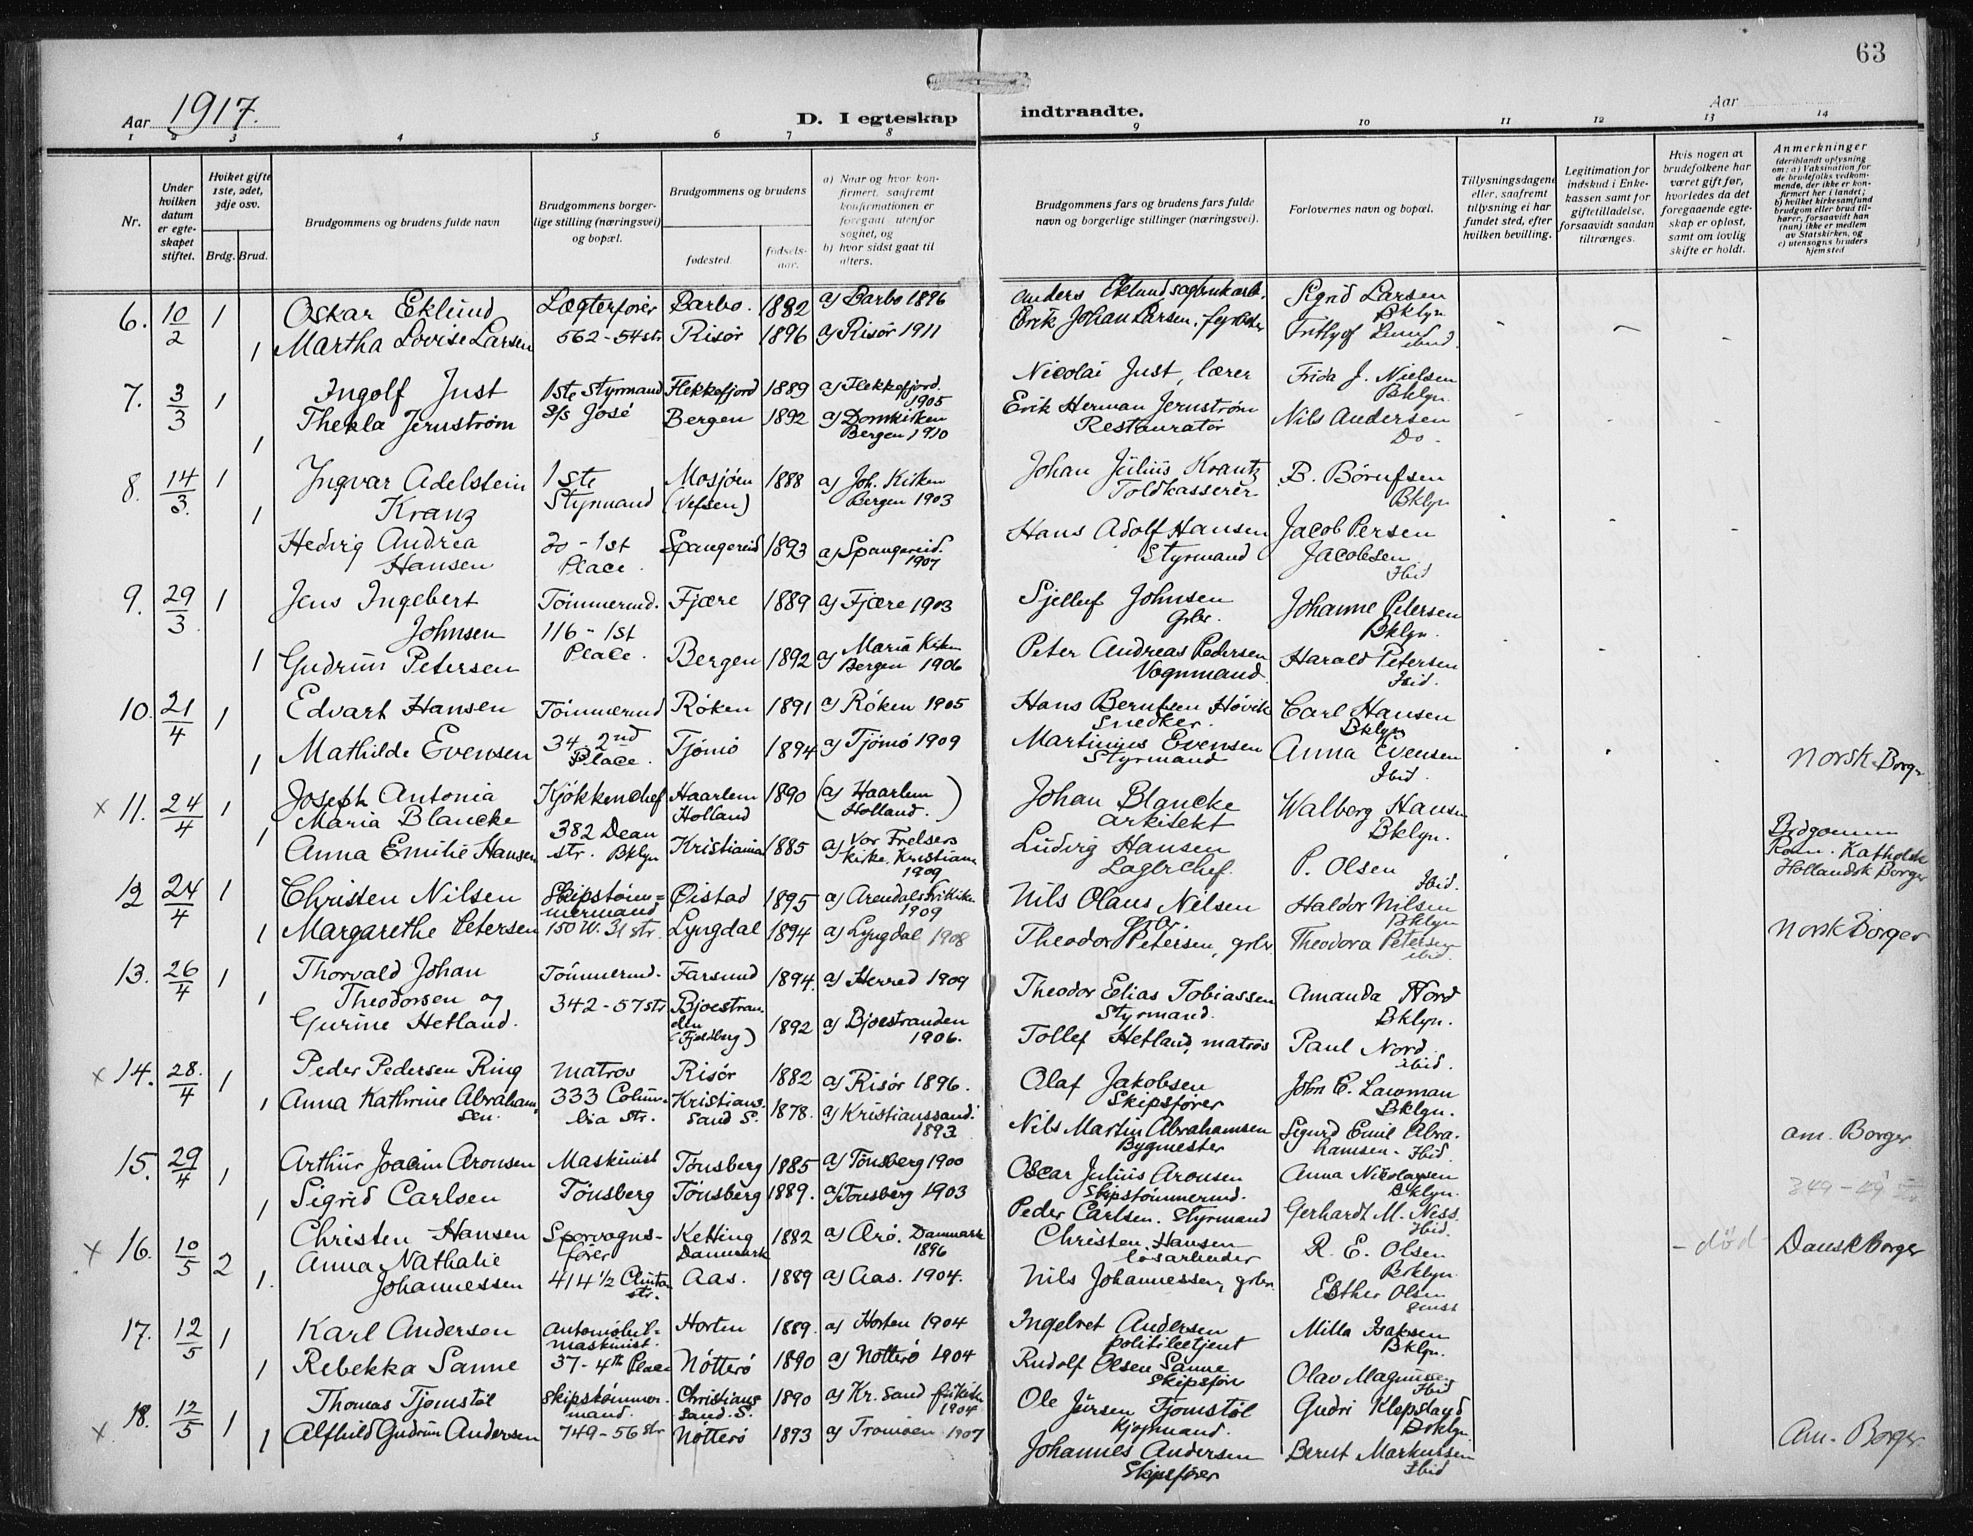 63
Aar 1917.
D. I egteskap indtraadte.
Aar
1 2 3 4 5 6 7 8 9 10 11 12 13 14
Nr.
Under hvilken datum er egteskapet stiftet.
Hvilket gifte 1ste, 2det, 3dje osv.
Brdg. Brud.
Brudgommens og brudens fulde navn
Brudgommens borgerlige stilling (næringsvei) og bopæl.
Brudgommens og brudens
fødested.
fødselsaar.
a) Naar og hvor konfirmert, saafremt konfirmationen er foregaat utenfor sognet, og
b) hvor sidst gaat til alters.
Brudgommens fars og brudens fars fulde navn og borgerlige stillinger (næringsvei).
Forlovernes navn og bopæl.
Tillysningsdagene eller, saafremt tillysning ei har fundet sted, efter hvilken bevilling.
Legitimation for indskud i Enkekassen samt for giftetilladelse, forsaavidt saadan tiltrænges.
Hvis nogen av brudefolkene har været gift før, hvorledes da det foregaaende egteskap er opløst, samt om lovlig skifte er holdt.
Anmerkninger (deriblandt oplysning om: a) Vaksination for de brudefolks vedkommende, der ikke er konfirmert her i landet; b) hvilket kirkesamfund brudgom eller brud tilhører, forsaavidt han (hun) ikke er medlem av Statskirken, og c) utensogns bruders hjemsted
6. 10/2 1 Oskar Eklund Lægterfører Barbo. 1882 a) Barbo 1896 Anders Eklund sagbrukarb. Sigrid Larsen Bklyn
1 Martha Lovise Larsen 562-54 str Risør 1896 a) Risør 1911 Erik Johan Larsen, fyrbøter Frithjof Lund ibid.
7. 3/3 1 Ingolf Just 1ste Styrmand Flekkefjord 1889 a) Flekkefjord. 1905 Nicolai Just, lærer Frida J. Nielsen Bklyn
1 Thekla Jernstrøm S/s José Bergen 1892 a) Domkirken Bergen 1910 Erik Herman Jernstrøm Restauratør Nils Andersen Do.
8. 14/3 1 Ingvar Adelstein Kranz 1ste Styrmand Mosjøen (Vefsen) 1888 a) Joh. Kirken Bergen 1903 Johan Julius Krantz Toldkasserer B. Børufsen Bklyn
1 Hedvig Andrea Hansen 20-1st Place. Spangereid 1893 a) Spangereid. 1907 Hans Adolf Hansen Styrmand Jacob Persen Jacobsen Ibid
9. 29/3 1 Jens Ingebert Johnsen Tømmermd. 116-1st Place. Fjære 1889 a) Fjære 1903 Sjelluf Johnsen Grbr. Johanne Petersen Bklyn.
1 Gudrun Petersen Bergen 1892 a) Maria Kirken Bergen 1906 Peter Andreas Pedersen Vognmand Harald Petersen Ibid.
10. 21/4 1 Edvart Hansen Tømmermd Røken 1891 a) Røken 1905 Hans Berntsen Høvik Snedker. Carl Hansen Bklyn
1 Mathilde Evensen 34, 2nd Place. Tjømø 1894 a) Tjømø 1909 Martinius Evensen Styrmand Anna Evensen Ibid. Norsk Borger
x 11. 24/4 1 Joseph Antonia Maria Blancke Kjøkkenchef Haarlem Holland 1890 (a) Haarlem Holland.) Johan Blancke arkitekt Walberg Hansen Bklyn.
1 Anna Emilie Hansen 382 Dean str. Bklyn Kristiania 1885 a) Vor Frelsers kirke, Kristiania 1909 Ludvig Hansen Lagerchef. P. Olsen Ibid. Brdgommen Rom. Katholsk Hollandsk Borger
12 24/4 1 Christen Nilsen Skipstømmermand Øistad 1895 a) Arendals frikirke 1909 Nils Olaus Nilsen grbr. Haldor Nilsen Bklyn
1 Margarethe Petersen 150 W. 31 str. Lyngdal 1894 a) Lyngdal 1908 Theodor Petersen, grbr Theodora Petersen ibid. Norsk Borger
13. 26/4 1 Thorvald Johan Theodorsen og Tømmermd. Farsund 1894. a) Herred 1909 Theodor Elias Tobiassen Styrmand. Amanda Nord Bklyn.
1 Gurine Hetland. 342-57 str Bjoestranden (Fjeldberg) 1892 a) Bjoestranden 1906. Tollef Hetland, matros Paul Nord ibid.
x 14. 28./4 1 Peder Pedersen Ring Matros Risør 1882 a) Risør 1896. Olaf Jakobsen Skipsfører John E. Lawman Bklyn.
1 Anna Kathrine Abrahamsen. 333 Columbia Str. Kristianssand S. 1878. a) Kristianssand. 1893 Nils Martin Abrahamsen Bygmester Sigurd Emil Abrahamsen - Ibid. am. Borger
15. 29/4 1 Arthur Joacim Aronsen Maskinist Tønsberg 1885 a) Tønsberg 1900 Oscar Julius Aronsen Skipstømmermd. Anna Nicolaysen Bklyn.
1 Sigrid Carlsen Tønsberg Tønsberg 1889. a) Tønsberg 1903 Peder Carlsen. Styrmand Gerhardt M. Ness. Ibid. 349-49
x 16. 10/5 2 Christen Hansen Sporvognsfører Ketting Danmark 1882 a) Arø. Danmark 1896 Christen Hansen løsarbeider R. E. Olsen Bklyn. - død - Dansk Borger
1. Anna Nathalie Johannessen 414½ Clinton str. Aas. 1889 a) Aas. 1904. Nils Johannessen, grbr. Esther Olsen
17. 12/5 1 Karl Andersen Automobilmaskinist. Horten 1889. a) Horten 1904 Ingebret Andersen politibetjent Milla Isaksen Bklyn.
1 Rebekka Sanne 37-4th Place Nøtterø 1890 a) Nøtterø 1904 Rudolf Olsen Sanne Skipsfører Olav Magnussen Ibid
x 18. 12/5 1 Thomas Tjomstøl Skipstømmermand. Christianssand. S. 1890 a) Kr. Sand frikirke 1904 Ole Jørgen Tjomstøl Kjøpmand. Gudri Klepsland Bklyn.
1 Alfhild Gudrun Andersen 749-56 str Nøtterø 1893 a) Tromøen 1907 Johannes Andersen Skipsfører Bernt Markussen Ibid Am. Borger